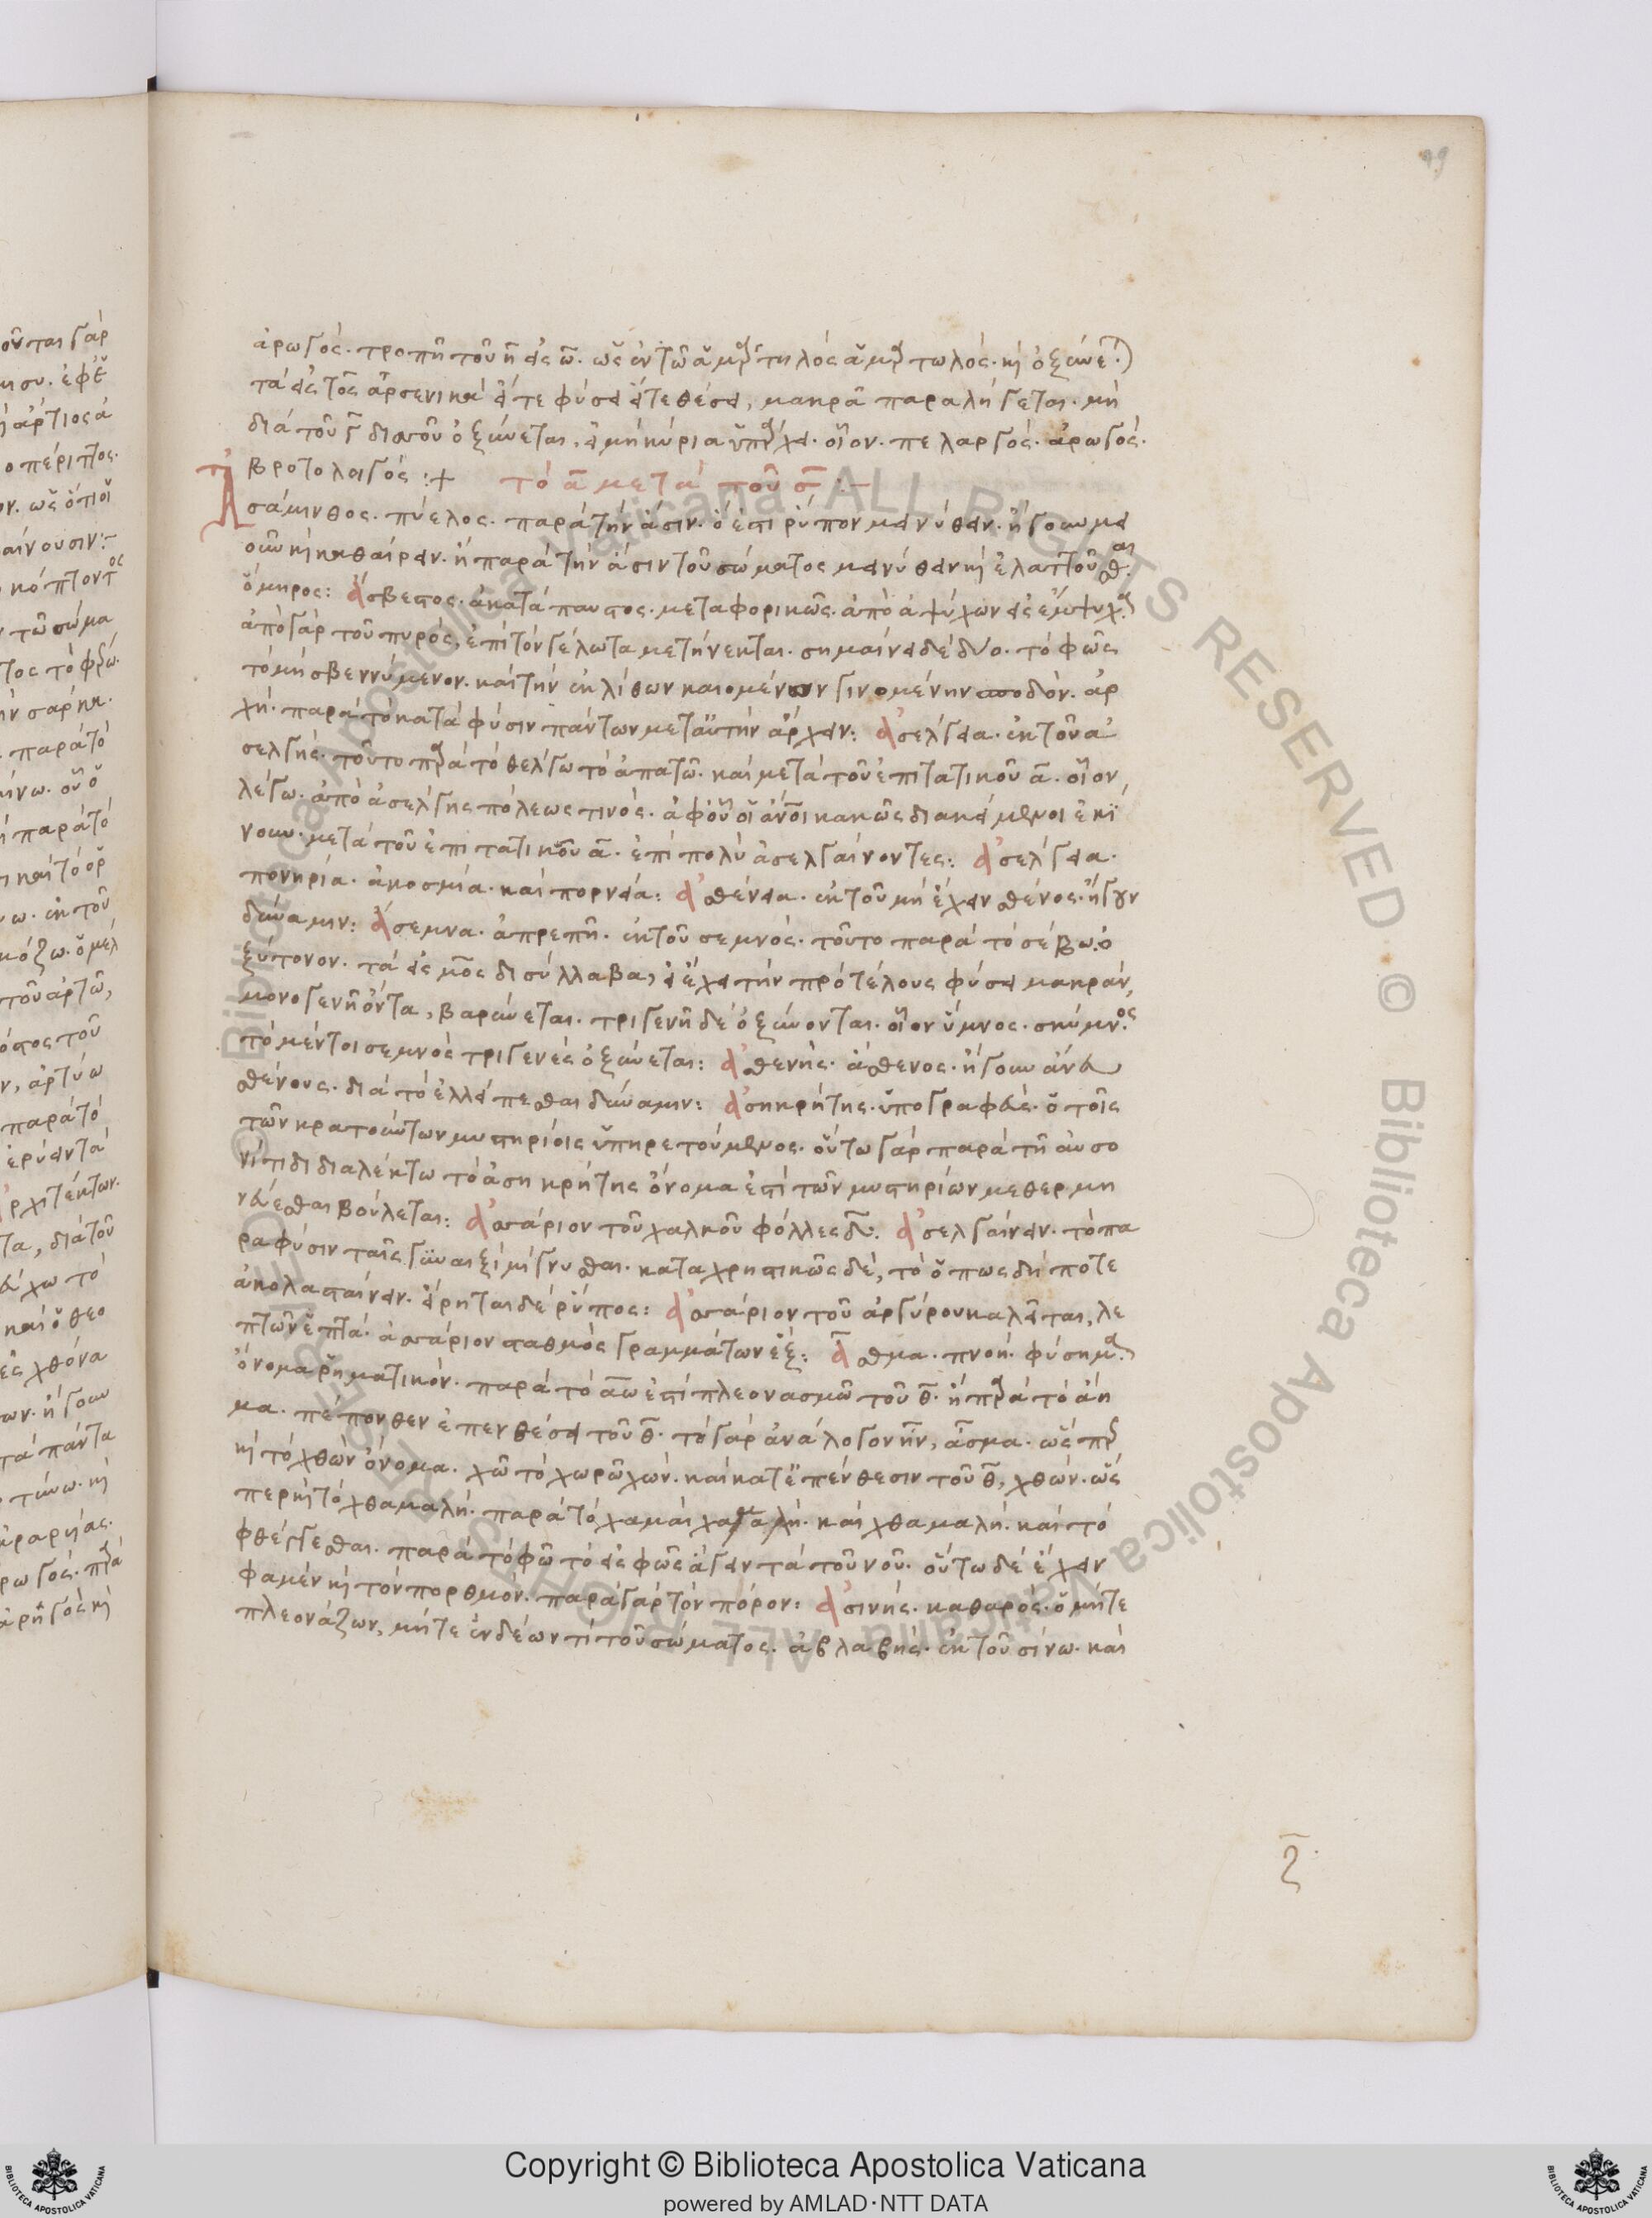 ἀρωγός. τροπῆ τοῦ η εἰς ω. ὡς ἐν τῶ ἁμαρτηλός ἁμαρτωλός. καὶ ὀξύνεται.
τὰ εἰς γος ἀρσενικὰ εἴτε φύσει εἴτε θέσει, μακρᾶ παραλήγεται. μὴ
διὰ τοῦ γ δισσοῦ ὀξύνεται, εἰ μὴ κύρια ὑπάρχει. οἷον. πελαργός. ἀρωγός.
βροτολοιγός :+ τὸ α μετὰ τοῦ σ :-
Ἀσάμινθος. πύελος. παρὰ τὴν ἄσιν. ὅ ἐστι ῥύπον μινύθειν. ἤγουν μει
οῦν καὶ καθαίρειν. ἢ παρὰ τὴν ἄσιν τοῦ σώματος μινύθειν καὶ ἐλαττοῦσθαι.
ὅμηρος: ἄσβεστος. ἀκατάπαυστος. μεταφορικῶς. ἀπὸ ἀψύχων εἰς ἔμψυχα.
ἀπὸ γὰρ τοῦ πυρός, ἐπὶ τὸν γέλωτα μετήνεκται. σημαίνει δὲ δύο. τὸ φῶς
τὸ μὴ σβεννύμενον. καὶ τὴν ἐκ λίθων καιομένων γινομένην σποδόν. ἀρ
χή. παρὰ τὸ κατὰ φύσιν πάντων μετ' αὐτὴν ἄρχειν: ἀσέλγεια. ἐκ τοῦ ἀ
σελγής. τοῦτο παρὰ τὸ θέλγω τὸ ἀπατῶ. καὶ μετὰ τοῦ ἐπιτατικοῦ α. οἷον,
λέγω. ἀπὸ ἀσέλγης πόλεως τινός. ἀφ' οὗ οἱ ἄνθρωποι κακῶς διακείμενοι ἐκι
νουν. μετὰ τοῦ ἐπιτατικοῦ α. ἐπὶ πολὺ ἀσελγαίνοντες: ἀσέλγεια.
πονηρία. ἀκοσμία. καὶ πορνεία: ἀσθένεια. ἐκ τοῦ μὴ ἔχειν σθένος. ἤγουν
δύναμιν: ἄσεμνα. ἀπρεπῆ. ἐκ τοῦ σεμνός. τοῦτο παρὰ τὸ σέβω. ὀ
ξύτονον. τὰ εἰς μνος δισύλλαβα, εἰ ἔχει τὴν πρὸ τέλους φύσει μακράν,
μονογενῆ ὄντα, βαρύνεται. τριγενῆ δὲ ὀξύνονται. οἷον ὕμνος. σκύμνος.
τὸ μέντοι σεμνὸς τριγενὲς ὀξύνεται: ἀσθενής. ἄσθενος. ἤγουν ἄνευ
σθένους. διὰ τὸ ἐλλείπεσθαι δύναμιν: ἀσηκρήτης. ὑπογραφεύς. ὁ τοῖς
τῶν κρατούντων μυστηρίοις ὑπηρετούμενος. οὕτω γὰρ παρὰ τῆ αὐσο
νίτιδι διαλέκτω τὸ ἀσηκρήτης ὄνομα ἐπὶ τῶν μυστηρίων μεθερμη
νεύεσθαι βούλεται: ἀσσάριον τοῦ χαλκοῦ φόλλες δ: ἀσελγαίνειν. τὸ πα
ρὰ φύσιν ταῖς γυναιξὶ μίγνυσθαι. καταχρηστικῶς δὲ, τὸ ὅπως δή ποτε
ἀκολασταίνειν. εἴρηται δὲ ῥύπος: ἀσσάριον τοῦ ἀργύρου καλεῖται, λε
πτῶν ἑπτά. ἀσσάριον σταθμὸς γραμμάτων ἕξ: ἆσθμα. πνοή. φύσημα.
ὄνομα ῥηματικόν. παρὰ τὸ ἄω ἐστὶ πλεονασμῶ τοῦ θ. ἢ παρὰ τὸ ἄη
μα. πέπονθεν ἐπενθέσει τοῦ θ. τὸ γὰρ ἀνάλογον ἦν, ἄσμα. ὥσπερ
καὶ τὸ χθὼν ὄνομα. χῶ τὸ χωρῶ χών. καὶ κατ' ἐπένθεσιν τοῦ θ, χθών. ὥσ
περ καὶ τὸ χθαμαλή. παρὰ τὸ χαμαὶ χαμαλή. καὶ χθαμαλή. καὶ τὸ
φθέγγεσθαι. παρὰ τὸ φῶ τὸ εἰς φῶς ἄγειν τὰ τοῦ νοῦ. οὕτω δὲ ἔχειν
φαμὲν καὶ τὸν πορθμόν. παρὰ γὰρ τὸν πόρον: ἀσινής. καθαρός. ὁ μήτε
πλεονάζων, μήτε ἐνδέων τί τοῦ σώματος. ἀβλαβής. ἐκ τοῦ σίνω. καὶ
Copyright © Biblioteca Apostolica Vaticana
powered by AMLAD·NTT DATA